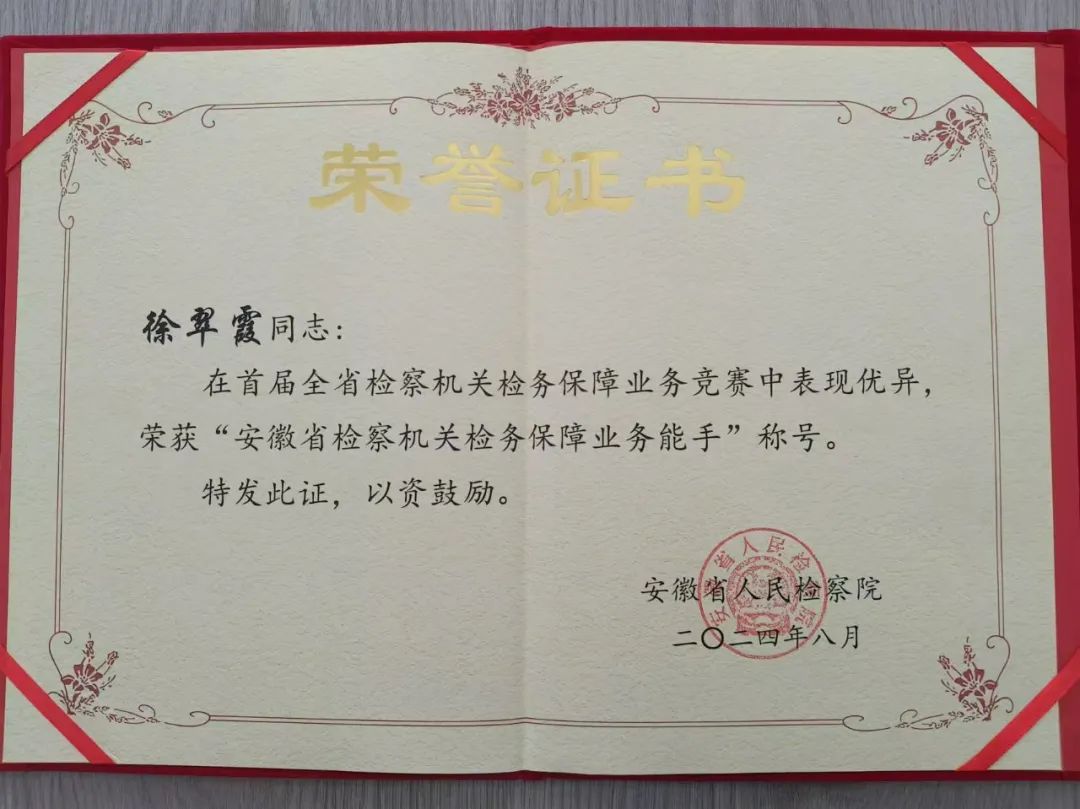 荣誉证书
徐翠霞同志：
在首届全省检察机关检务保障业务竞赛中表现优异，
荣获“安徽省检察机关检务保障业务能手”称号。
特发此证，以资鼓励。
安徽省人民检察院
安徽省人民检察院
二〇二四年八月